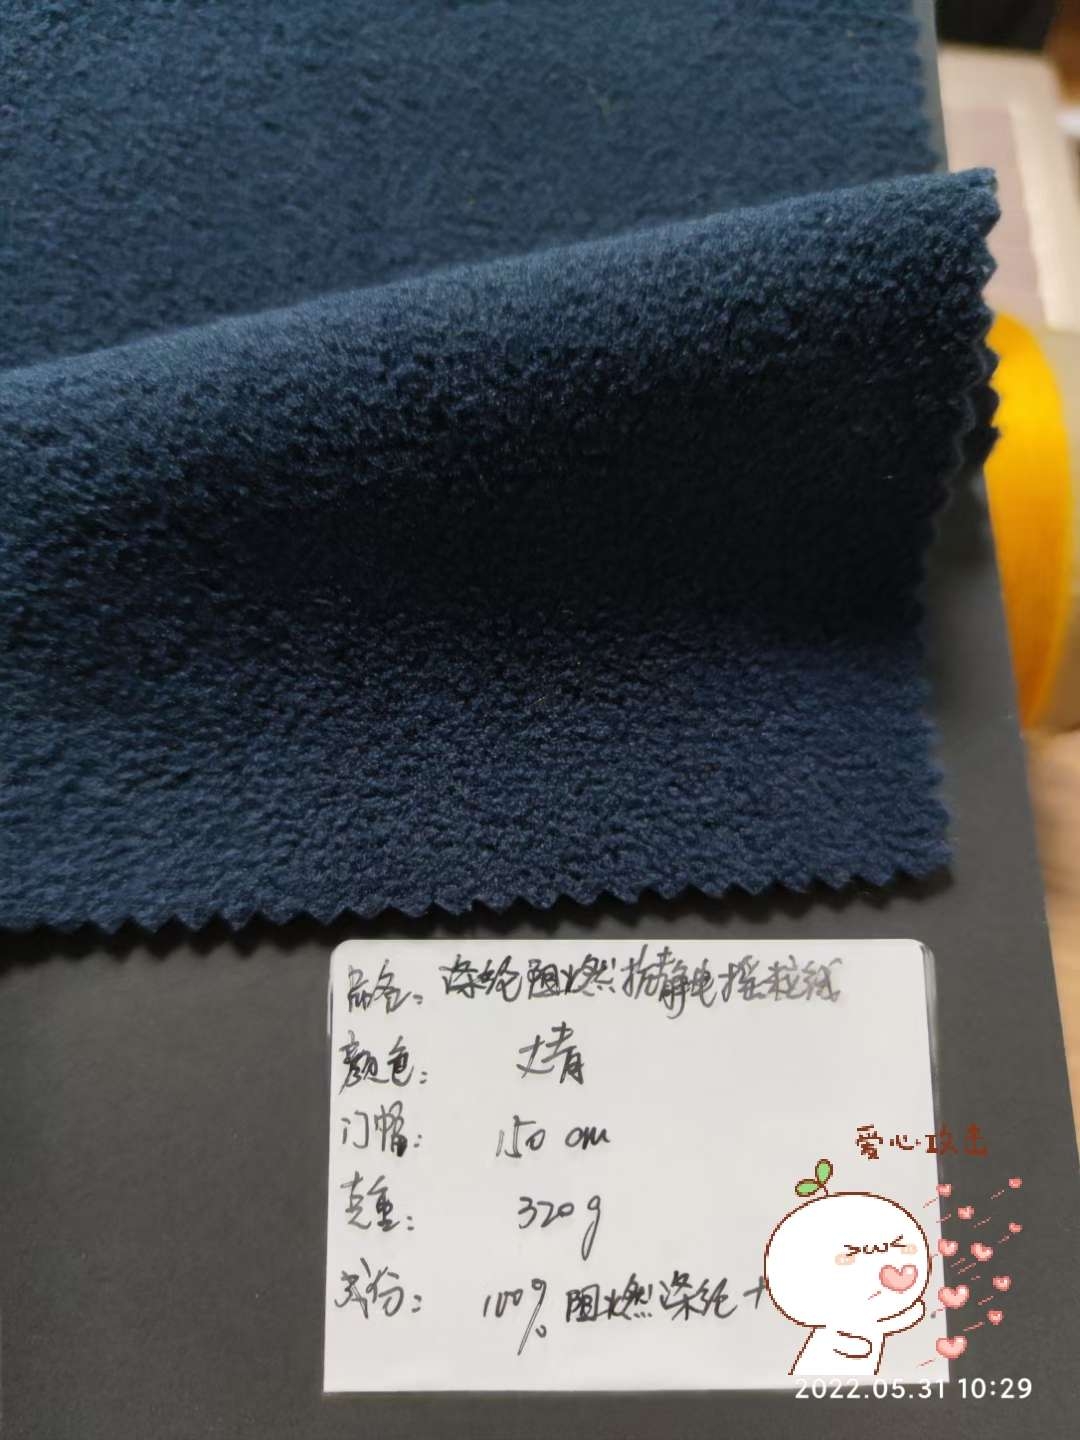 品名：涤纶阻燃抗静电摇粒绒
颜色：丈青
门幅：150 cm
克重：320g
成份：100% 阻燃涤纶+
爱心攻击
2022.05.31 10:29